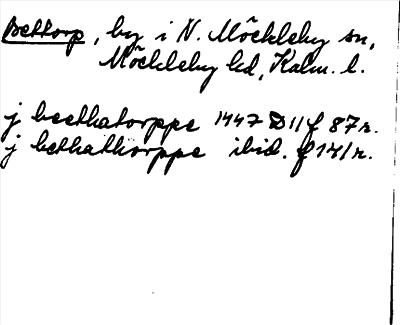 Bettorp, by i N. Möckleby sn,
Möckleby hd, Kalm. l.
j beethatorppe 1447 D 11 f 87 r.
j bethathorppe ibid. f 141 r.